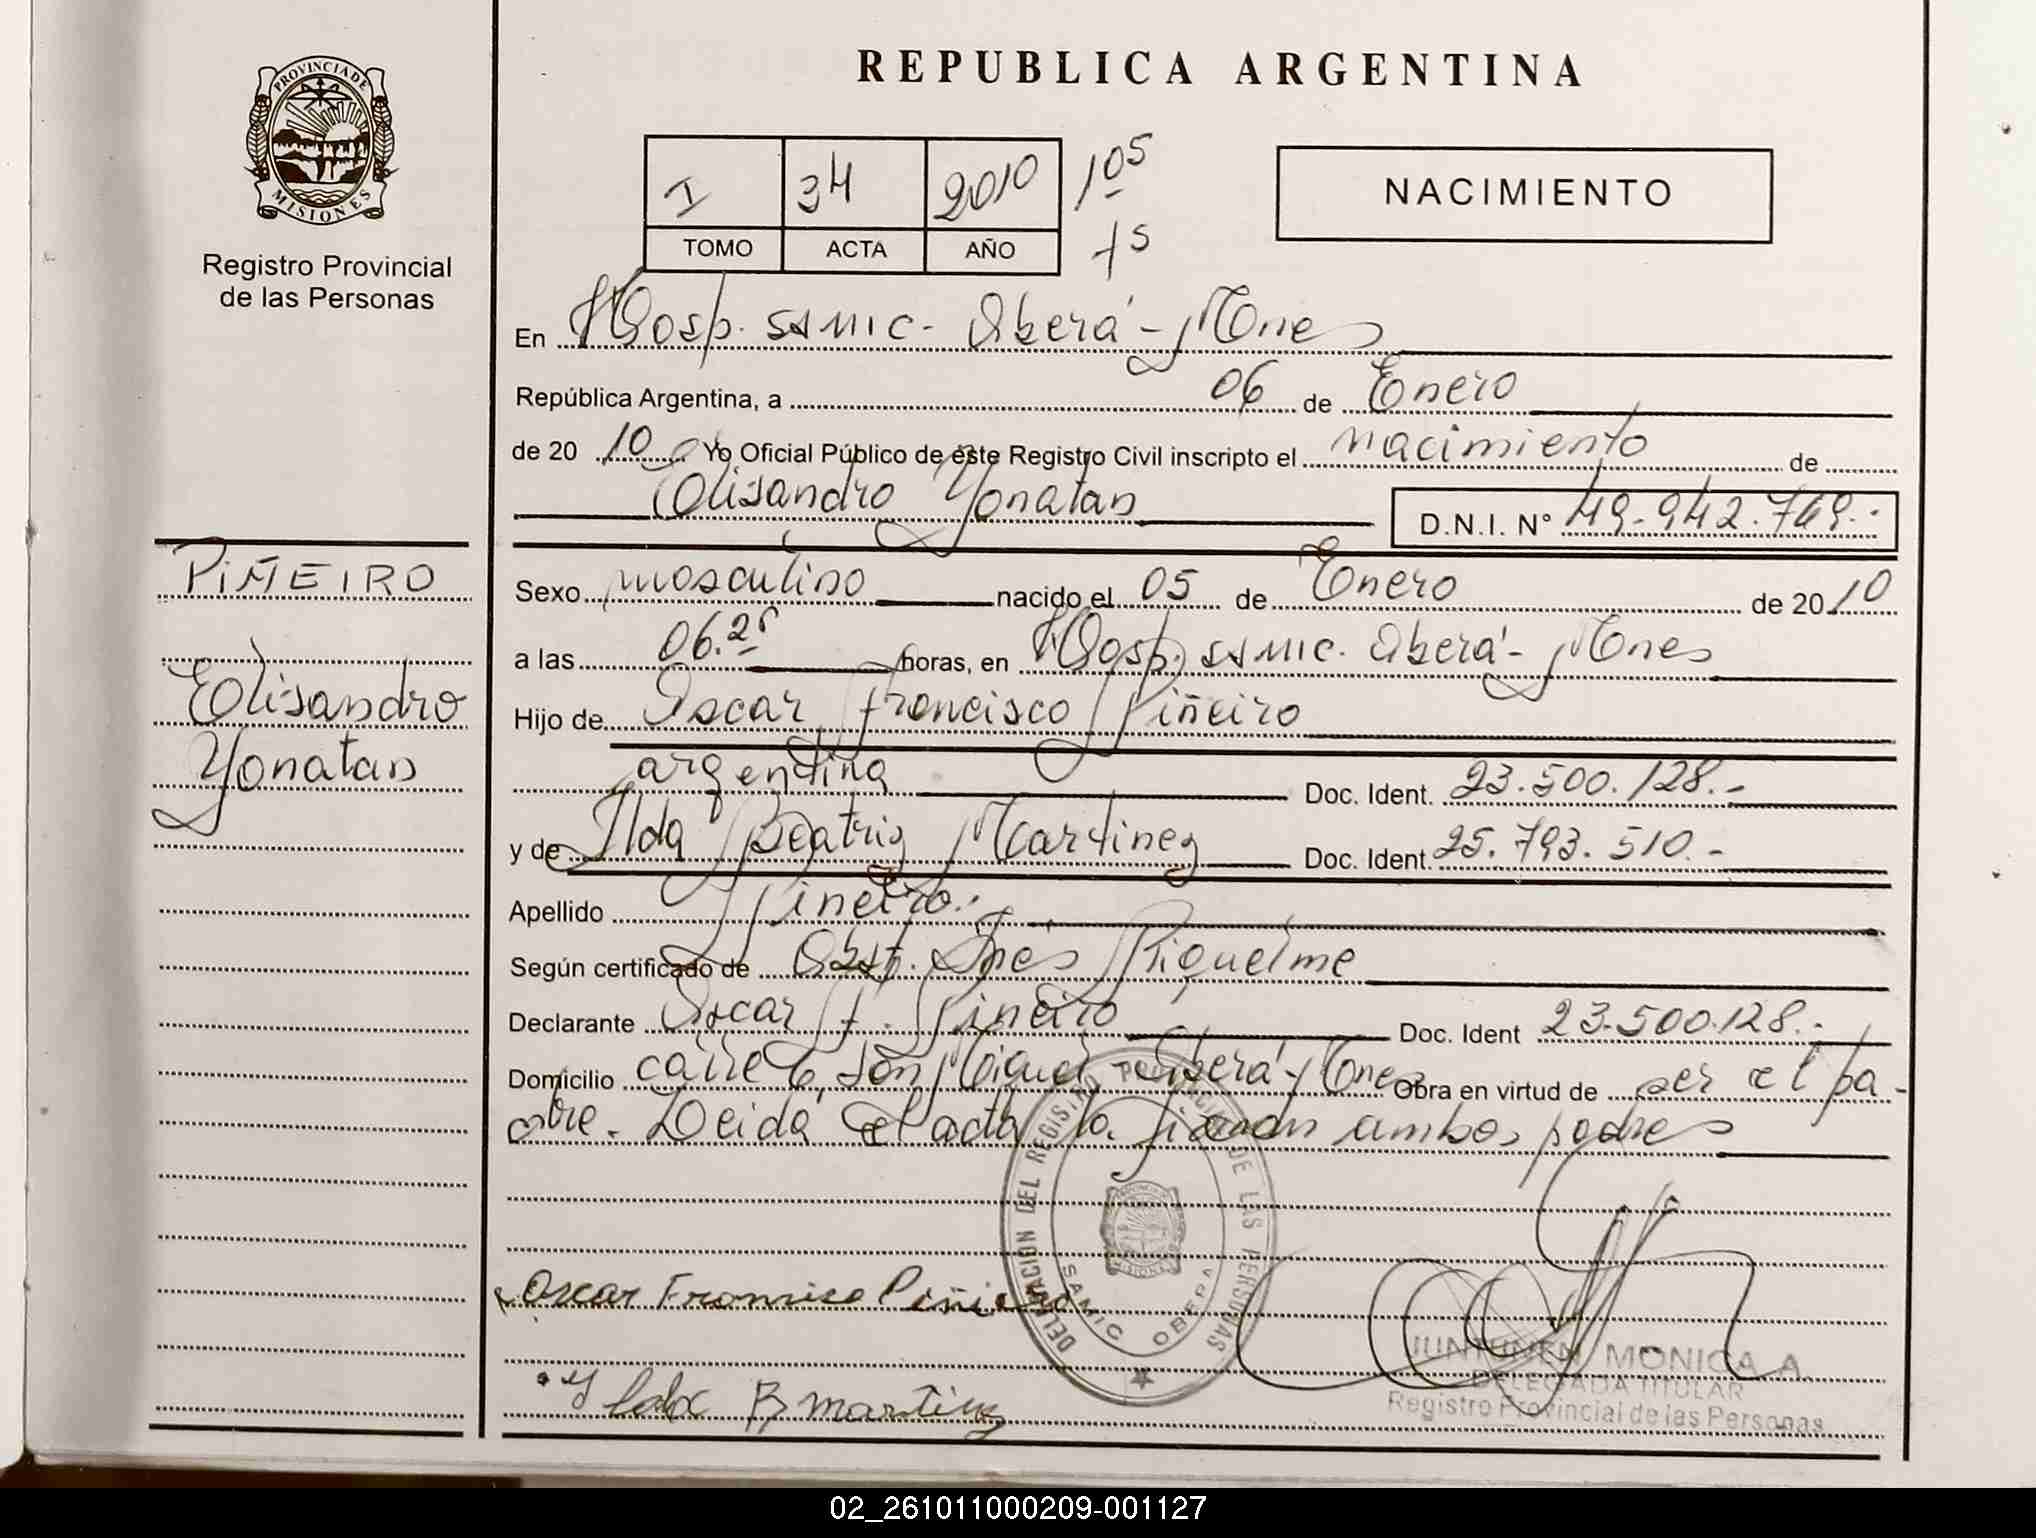 REPUBLICA ARGENTINA
PROVINCIA DE
MISIONES
Registro Provincial
de las Personas
I 34 2010 105
TOMO ACTA AÑO
NACIMIENTO
En Hosp. SAMIC. Oberá - Mnes
República Argentina, a 06 de Enero
de 20 10 Yo Oficial Público de este Registro Civil inscripto el nacimiento de
Elisandro Yonatan D.N.I. Nº 49.942.769.-
PIÑEIRO
Elisandro
Yonatan
Sexo masculino nacido el 05 de Enero de 20 10
a las 06.25 horas, en Hosp. SAMIC. Oberá - Mnes
Hijo de Oscar Francisco Piñeiro
argentina Doc. Ident. 23.500.128.-
y de Ilda Beatriz Martinez Doc. Ident 25.793.510.-
Apellido Piñeiro.-
Según certificado de Obst. Inés Riquelme
Declarante Oscar F. Piñeiro Doc. Ident 23.500.128.-
Domicilio calle 6, San Miguel, Oberá - Mnes Obra en virtud de ser el pa-
dre. Leida el acta la firman ambos padres
DELEGACION DEL REGISTRO PROVINCIAL DE LAS PERSONAS
SAMIC OBERA
MISIONES
Oscar Francisco Piñeiro
Ilda B martinez
JUNTUNEN MONICA A.
DELEGADA TITULAR
Registro Provincial de las Personas
02_261011000209-001127